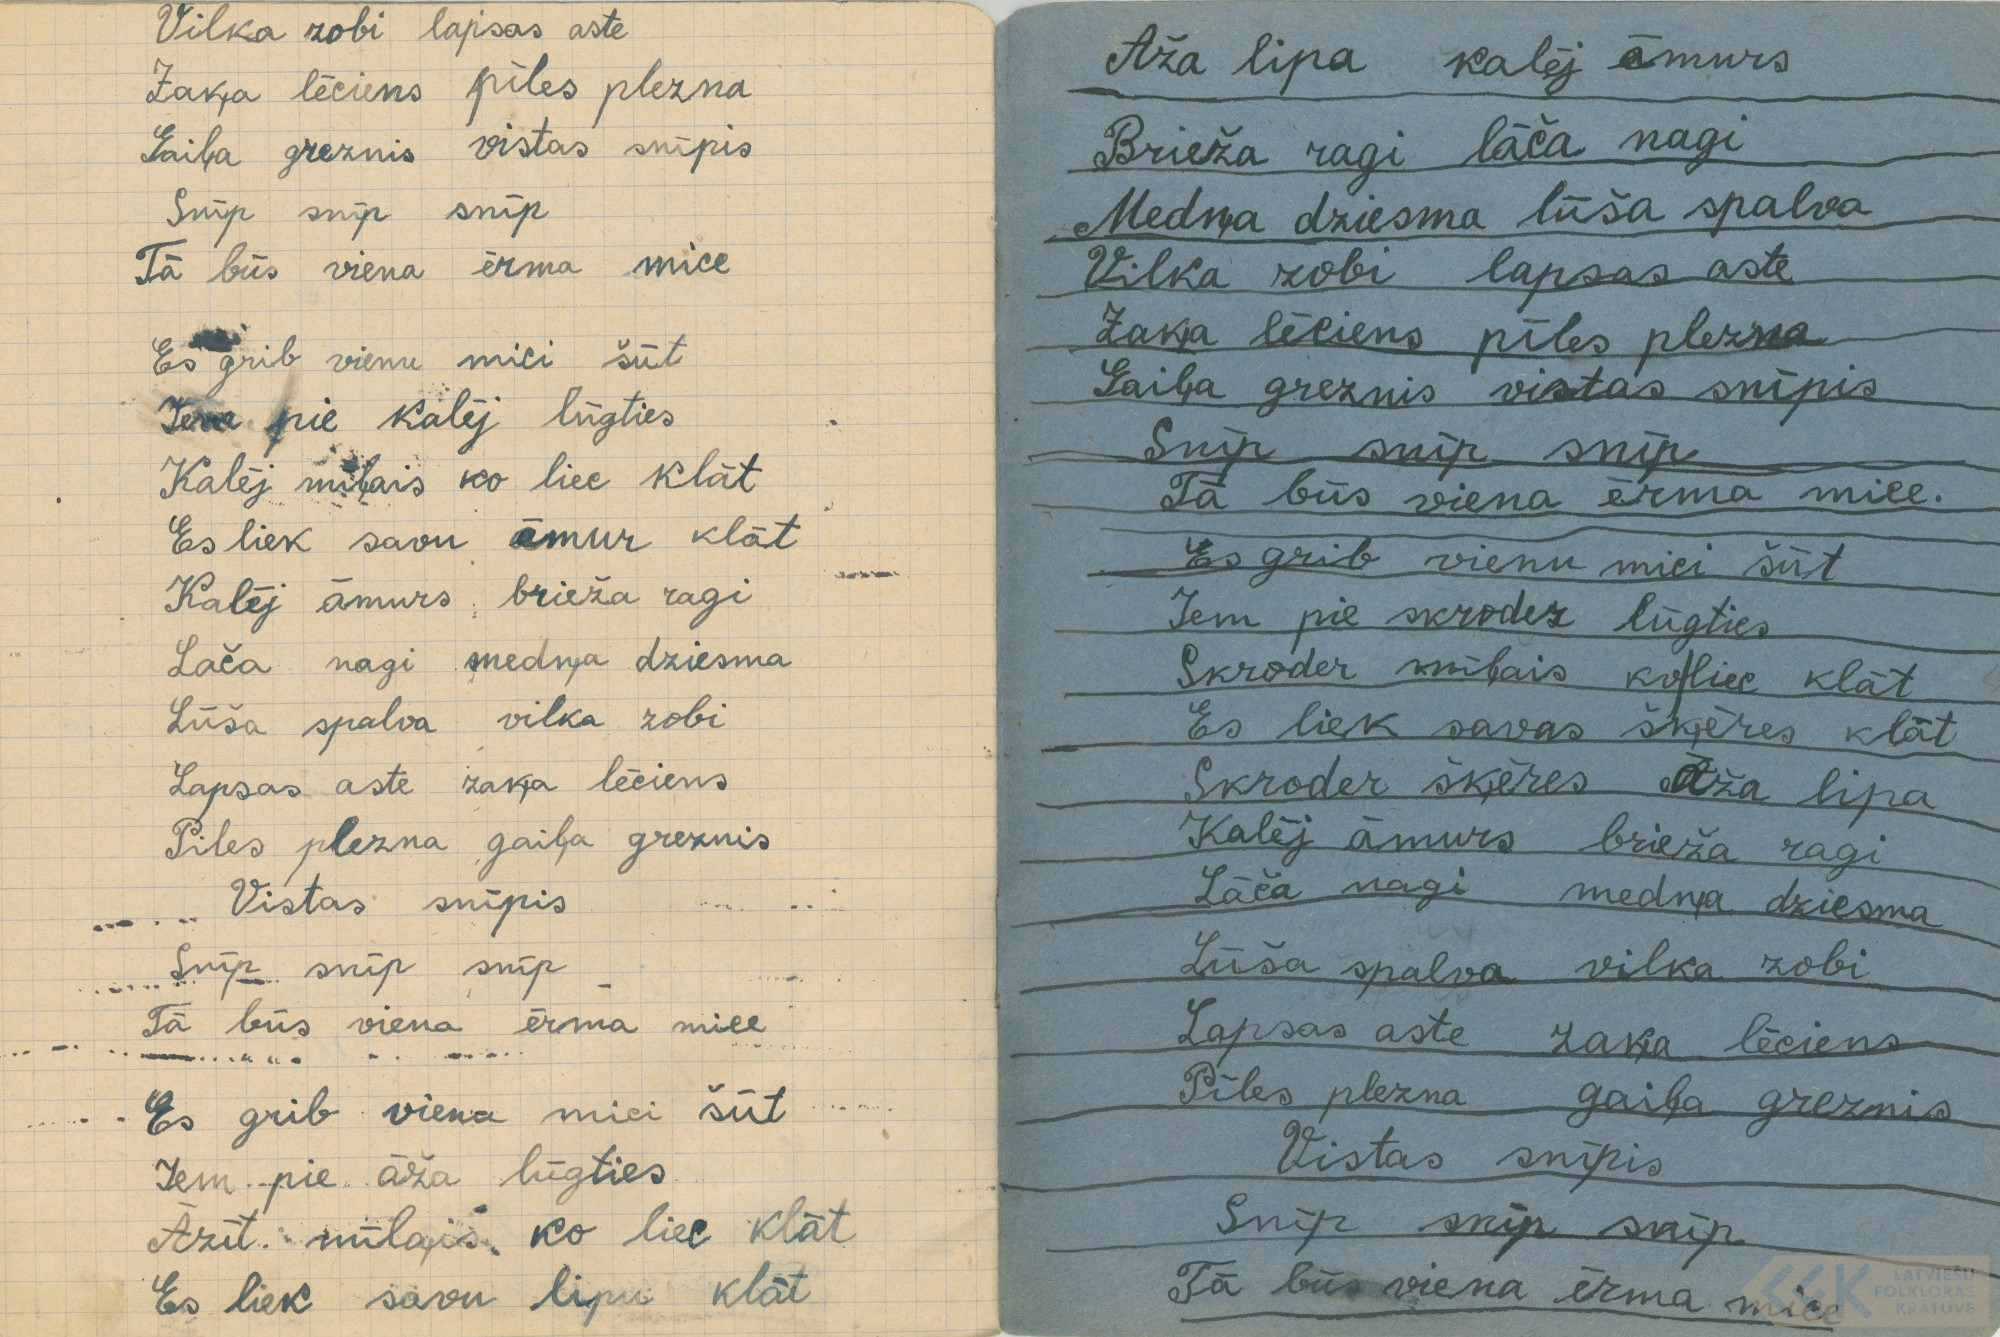 Vilka zobi lapsas aste
Zaķa lēciens pīles plezna
Gaiļa greznis vistas snīpis
Snīp snīp snīp
Tā būs viena ērma mice
Es grib vienu mici šūt
Iem pie kalēj lūgties
Kalēj mīļais ko liec klāt
Es liek savu āmur klāt
Kalēj āmurs brieža ragi
Lača nagi medņa dziesma
Lūša spalva vilka zobi
Lapsas aste zaķa lēciens
Pīles plezna gaiļa greznis
Vistas snīpis
Snīp snīp snīp
Tā būs viena ērma mice
Es grib viena mici šūt
Iem pie āža lūgties
Āzīt mīļais ko liec klāt
Es liek savu lipu klāt
Aža lipa kalēj āmurs
Brieža ragi lāča nagi
Medņa dziesma lūša spalva
Vilka zobi lapsas aste
Zaķa lēciens pīles plezna
Gaiļa greznis vistas snīpis
Snīp snīp snīp
Tā būs viena ērma mice.
Es grib vienu mici šūt
Iem pie skroder lūgties
Skroder mīļais ko liec klāt
Es liek savas šķēres klāt
Skroder šķēres Aža lipa
Kalēj āmurs brieža ragi
Lāča nagi medņa dziesma
Lūša spalva vilka zobi
Lapsas aste zaķa lēciens
Pīles plezna gaiļa greznis
Vistas snīpis
Snīp snīp snīp
Tā būs viena ērma mice
LATVIEŠU
FOLKLORAS
KRĀTUVE